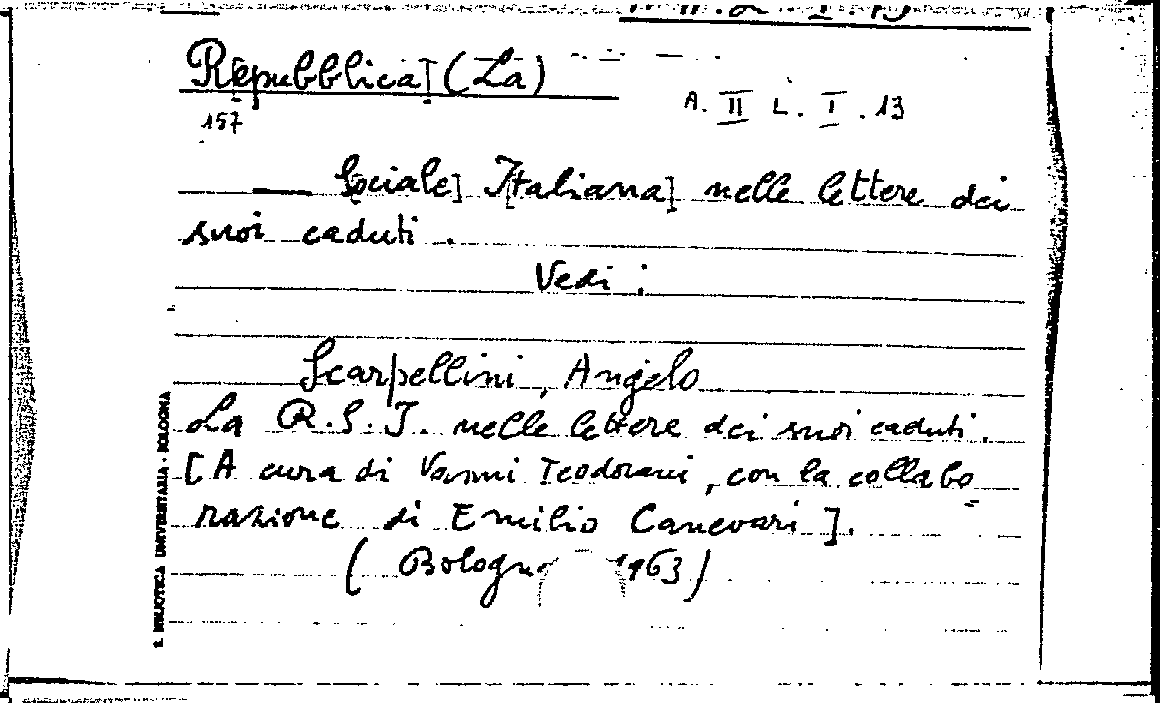 Repubblica] (La)
157
A. II L. I. 13
Sociale] I[taliana] nelle lettere dei
suoi caduti.
Vedi:
Scarpellini, Angelo
La R.S.I. nelle lettere dei suoi caduti.
[A cura di Vanni Teodorani, con la collabo=
razione di Emilio Canevari].
(Bologna 1963)
S. BIBLIOTECA UNIVERSITARIA - BOLOGNA